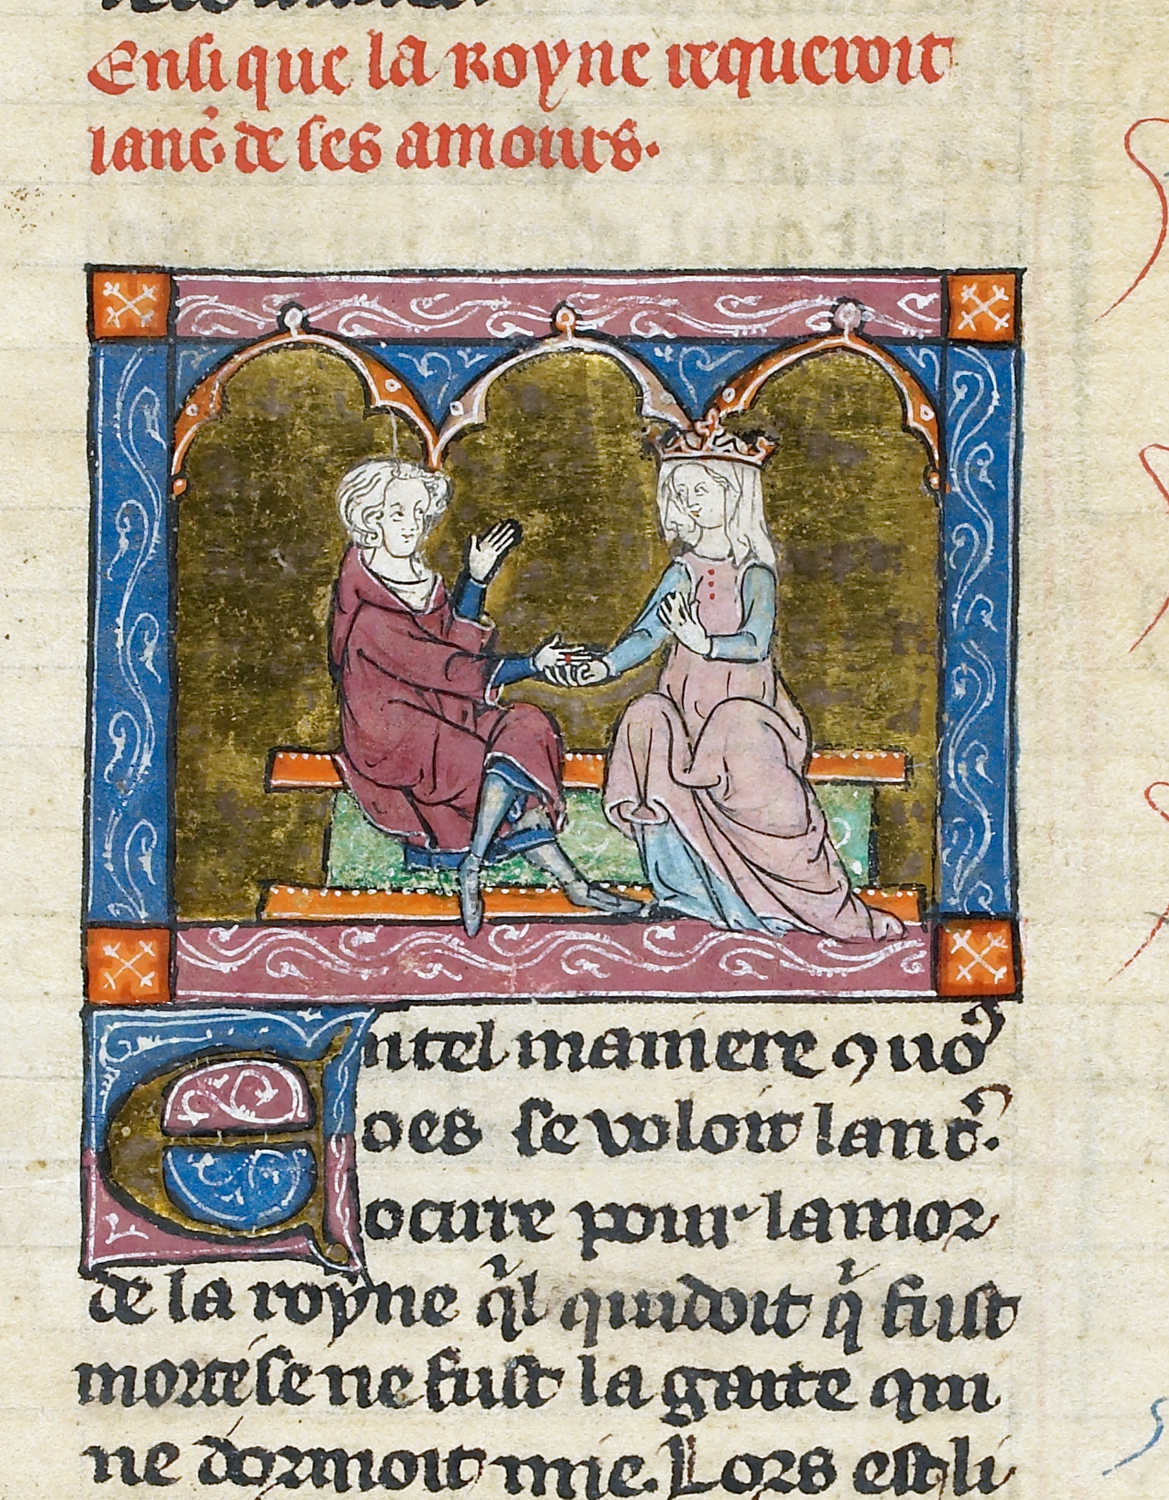 Ensi que la royne requeroit
lanc̄. de ses amours.
Entel maniere 9 uo9
oes se voloit lanc̄.
ocirre pour lamor
de la royne q̇l quidoit q̇ fust
morte se ne fust la gaite qui
ne dormoit mie. Lors est li